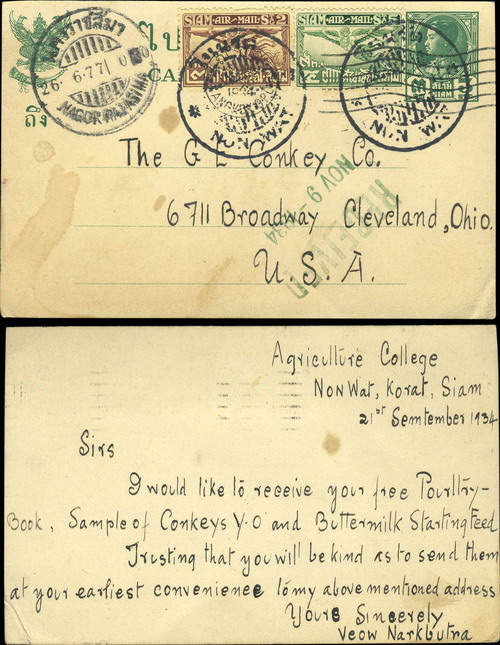 ไป
CAR
ถึง
นครราชสีมา
NAGOR RAJASIMA
SIAM AIR-MAIL
SIAM AIR-MAIL
สยาม
SIAM
NON WAT
NON WAT
The G E Conkey Co.
6711 Broadway Cleveland, Ohio.
U.S.A.
RECEIVED
NOV 9 - 1934
Agriculture College
NonWat, Korat, Siam
21st Semtember 1934
Sirs
I would like to receive your free Poultry-
Book, Sample of Conkeys Y-O and Buttermilk Starting Feed
Trusting that you will be kind as to send them
at your earliest convenience to my above mentioned address
Yours Sincerely
Veow Narkbutra